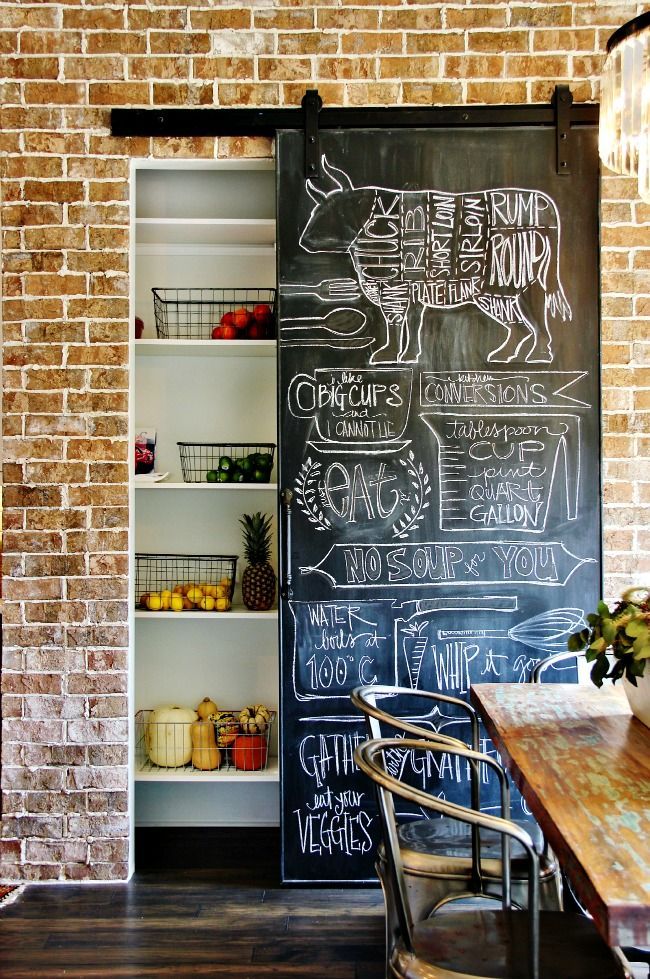 CHUCK
RIB
SHORT LOIN
SIRLOIN
RUMP
ROUND
SHANK
PLATE
FLANK
SHANK
i like
BIG CUPS
and
I CANNOT LIE
kitchen
CONVERSIONS
tablespoon
CUP
pint
QUART
GALLON
eat
NO SOUP for YOU
WATER
boils at
100°C
WHIP it go
GATHER
GRATEF
eat your
VEGGIES